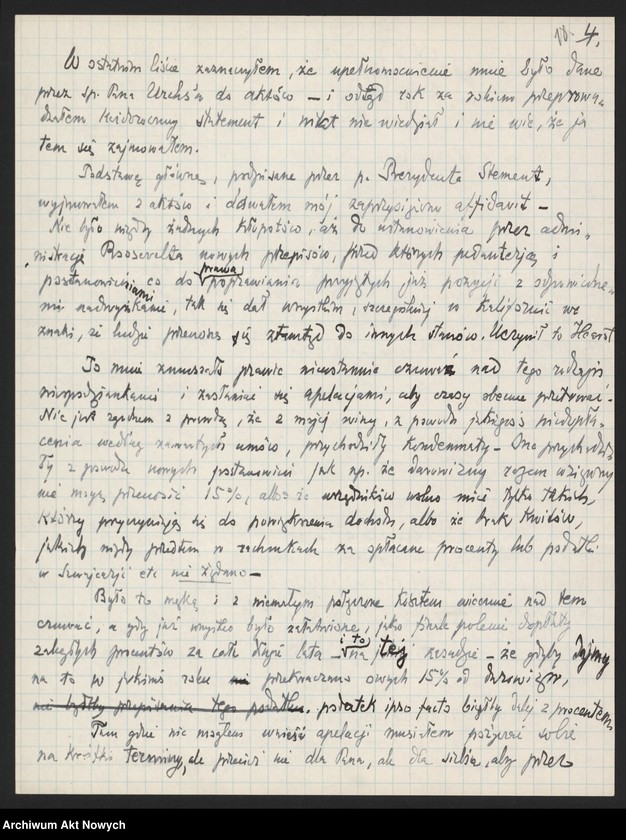 18. 4.
W ostatnim liście zaznaczyłem, że upełnomocnienie mnie było dane
przez śp. Pana do aktów – i odtąd rok za rokiem przeprowa-
dzałem statement i nikt nie wiedział i nie wie, że ja
tem się zajmowałem.
Podstawę główną, podpisane przez p. Prezydenta Stement,
wyjmowałem z aktów i dawałem mój zaprzysiężony affidavit –
Nie było nigdy żadnych kłopotów, aż do ustanowienia przez admi-
nistrację Roosevelta nowych przepisów, przed których pedanterją i
postanowieniami co do prawa poprawiania przyjętych już pozycji z
nadwyżkami, tak się dał wszystkim, szczególniej w Kalifornii we
znaki, że ludzie przenoszą się ztamtąd do innych stanów. Uczynił to Hearst
To mnie zmuszało prawie nieustannie czuwać nad tego rodzaju
niespodziankami i zasłaniać się apelacjami, aby czasy obecne przetrwać.
Nie jest zgodnem z prawdą, że z mojej winy, z powodu jakiegoś niedopła-
cenia według zawartych umów, przychodziły kondemnaty – One przychodzi-
ły z powodu nowych postanowień jak np. że darowizny razem wzięte
nie mogą przenosić 15%, albo że urzędników wolno mieć tylko takich,
którzy przyczyniają się do powiększenia dochodu, albo że brak kwitów,
jakich nigdy przedtem w rachunkach za opłacane procenty lub podatki
w Szwajcarji etc nie żądano –
Było to męką i z niemałym połączone kosztem wiecznie nad tem
czuwać, a gdy już wszystko było załatwione, jako finale polecać dopłaty
zaległych procentów za całe długie lata – i to na tej zasadzie – że gdyby dajmy
na to w jakimś roku przekraczano owych 15% od darowizn,
podatek ipso facto bieżyły dalej z procentem
Tam gdzie nie mogłem wnieść apelacji musiałem pożyczać sobie
na krótkie terminy, ale przecież nie dla Pana, ale dla siebie, aby przez
Archiwum Akt Nowych